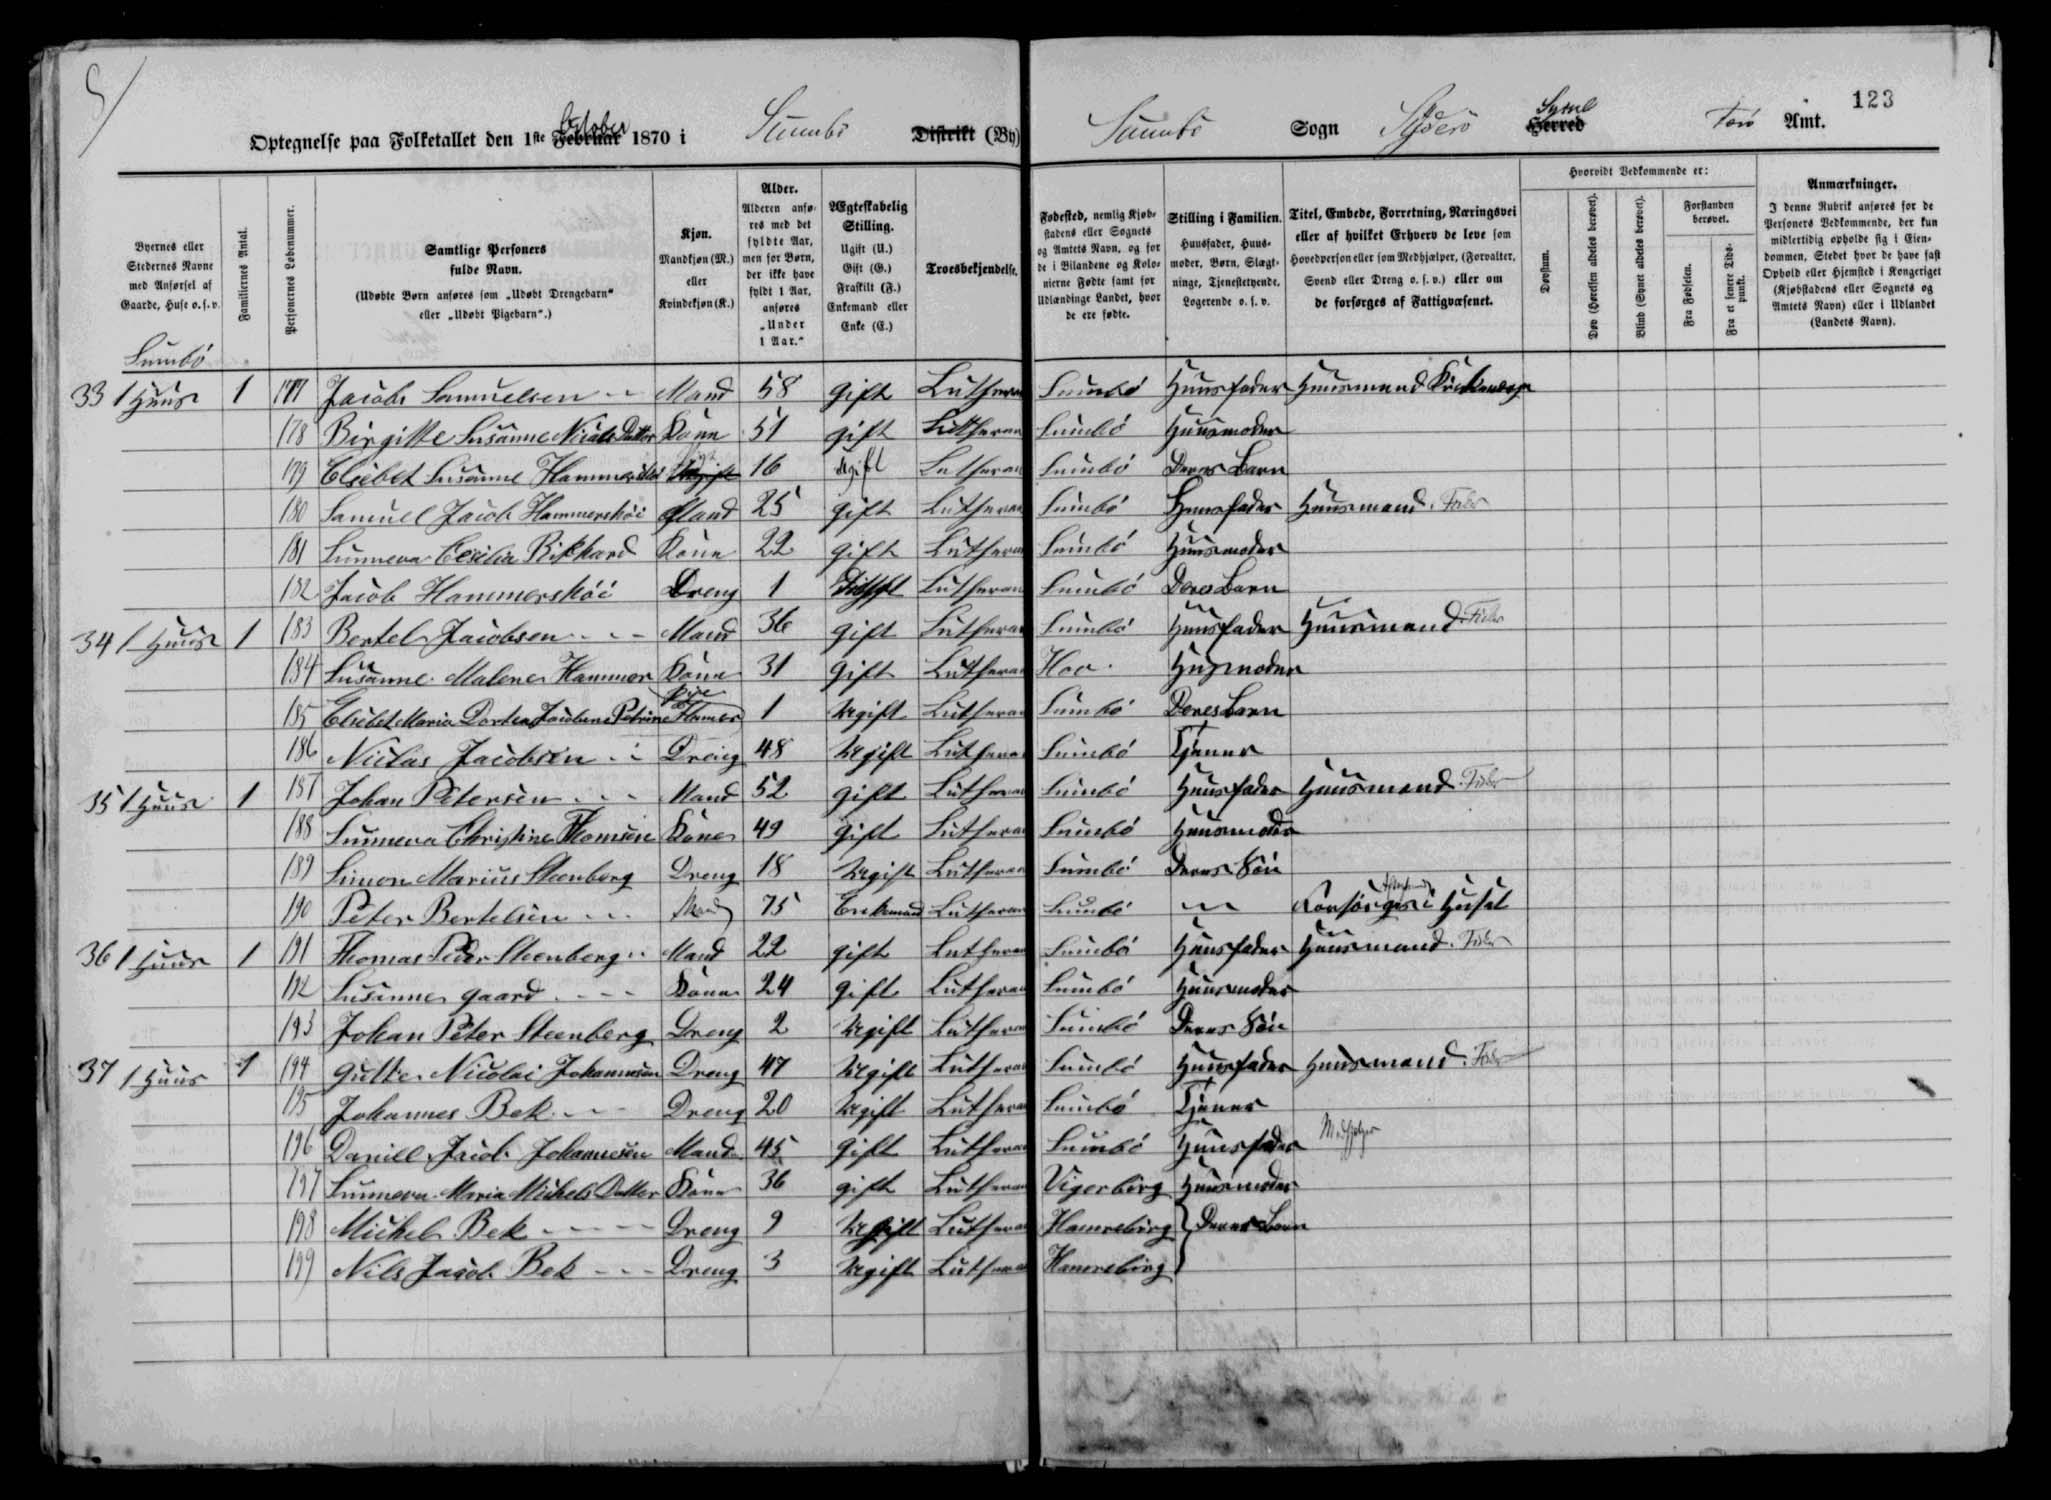 123
Optegnelse paa Folketallet den 1ste Februar October 1870 i Sumbö Distrikt (By)
Sumbö Sogn Syderö Herred Syssel Færö Amt.
Byernes eller Stedernes Navne med Anførsel af Gaarde, Huse o. s. v.
Familiernes Antal.
Personernes Løbenummer.
Samtlige Personers fulde Navn.
(Udøbte Børn anføres som „Udøbt Drengebarn“ eller „Udøbt Pigebarn“.)
Kjøn.
Mandkjøn (M.) eller Kvindekjøn (K.)
Alder.
Alderen anføres med det fyldte Aar, men for Børn, der ikke have fyldt 1 Aar, anføres „Under 1 Aar.“
Ægteskabelig Stilling.
Ugift (U.) Gift (G.) Fraskilt (F.) Enkemand eller Enke (E.)
Troesbekjendelse.
Fødested, nemlig Kjøbstadens eller Sognets og Amtets Navn, og for de i Bilandene og Kolonierne Fødte samt for Udlændinge Landet, hvor de ere fødte.
Stilling i Familien.
Huusfader, Huusmoder, Børn, Slægtninge, Tjenestetyende, Logerende o. s. v.
Titel, Embede, Forretning, Næringsvei eller af hvilket Erhverv de leve som Hovedperson eller som Medhjælper, (Forvalter, Svend eller Dreng o. s. v.) eller om de forsørges af Fattigvæsenet.
Hvorvidt Vedkommende er:
Døvstum.
Døv (Hørelsen aldeles berøvet).
Blind (Synet aldeles berøvet).
Forstanden berøvet.
Fra Fødselen.
Fra et senere Tidspunkt.
Anmærkninger.
I denne Rubrik anføres for de Personers Vedkommende, der kun midlertidig opholde sig i Eiendommen, Stedet hvor de have fast Ophold eller Hjemsted i Kongeriget (Kjøbstadens eller Sognets og Amtets Navn) eller i Udlandet (Landets Navn).
Sumbö
33 1 Huus 1 177 Jacob Samuelsen Mand 58 gift Lutheran Sumbö Huusfader Huusmand
178 Birgitte Susanne Nicols Datter Kone 51 gift Lutheran Sumbö Huusmoder
179 Elsebet Susanne Hammersköi 16 Ugift Lutheran Sumbö Deres Barn
180 Samuel Jacob Hammersköi Mand 25 gift Lutheran Sumbö Huusfader Huusmand. Fisker
181 Sunneva Cecilia Kone 22 gift Lutheran Sumbö Huusmoder
182 Jacob Hammersköi Dreng 1 Lutheran Sumbö Deres Barn
34 1 Huus 1 183 Bertel Jacobsen Mand 36 gift Lutheran Sumbö Huusfader Huusmand. Fisker
184 Susanne Malene Hammer Kone 31 gift Lutheran Hov Huusmoder
185 Elsebet Maria Dortea Jacobine Petrine Hamer Pige 1 Ugift Lutheran Sumbö Deres Barn
186 Niclas Jacobsen Dreng 48 Ugift Lutheran Sumbö Tjener
35 1 Huus 1 187 Johan Petersen Mand 52 gift Lutheran Sumbö Huusfader Huusmand. Fisker
188 Sunneva Christine Thomsen Kone 49 gift Lutheran Sumbö Huusmoder
189 Simon Marius Steenberg Dreng 18 Ugift Lutheran Sumbö Deres Sön
190 Peter Bertelsen Mand 75 Enkemand Lutheran Sumbö Forsörges i Huset
36 1 Huus 1 191 Thomas Peder Steenberg Mand 22 gift Lutheran Sumbö Huusfader Huusmand. Fisker
192 Susanne gaard Kone 24 gift Lutheran Sumbö Huusmoder
193 Johan Peter Steenberg Dreng 2 Ugift Lutheran Sumbö Deres Sön
37 1 Huus 1 194 Gutte Nicolai Johannesen Dreng 47 Ugift Lutheran Sumbö Huusfader Huusmand. Fisker
195 Johannes Bek Dreng 20 Ugift Lutheran Sumbö Tjener
196 Daniel Jacob Johannesen Mand 45 gift Lutheran Sumbö Huusfader Medhjelper
197 Sunneva Maria Michels Datter Kone 36 gift Lutheran Vigerbirg Huusmoder
198 Michel Bek Dreng 9 Ugift Lutheran Hamrebirg Deres Barn
199 Nils Jacob Bek Dreng 3 Ugift Lutheran Hamrebirg